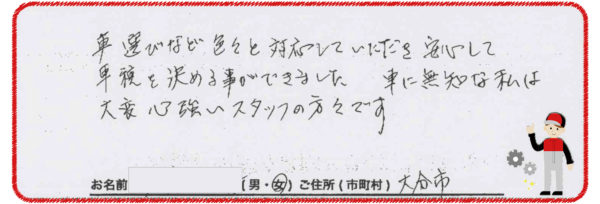 車選びなど色々と対応していただき安心して
車種を決める事ができました 車に無知な私は
大変心強いスタッフの方々です
お名前 (男・女) ご住所(市町村) 大分市